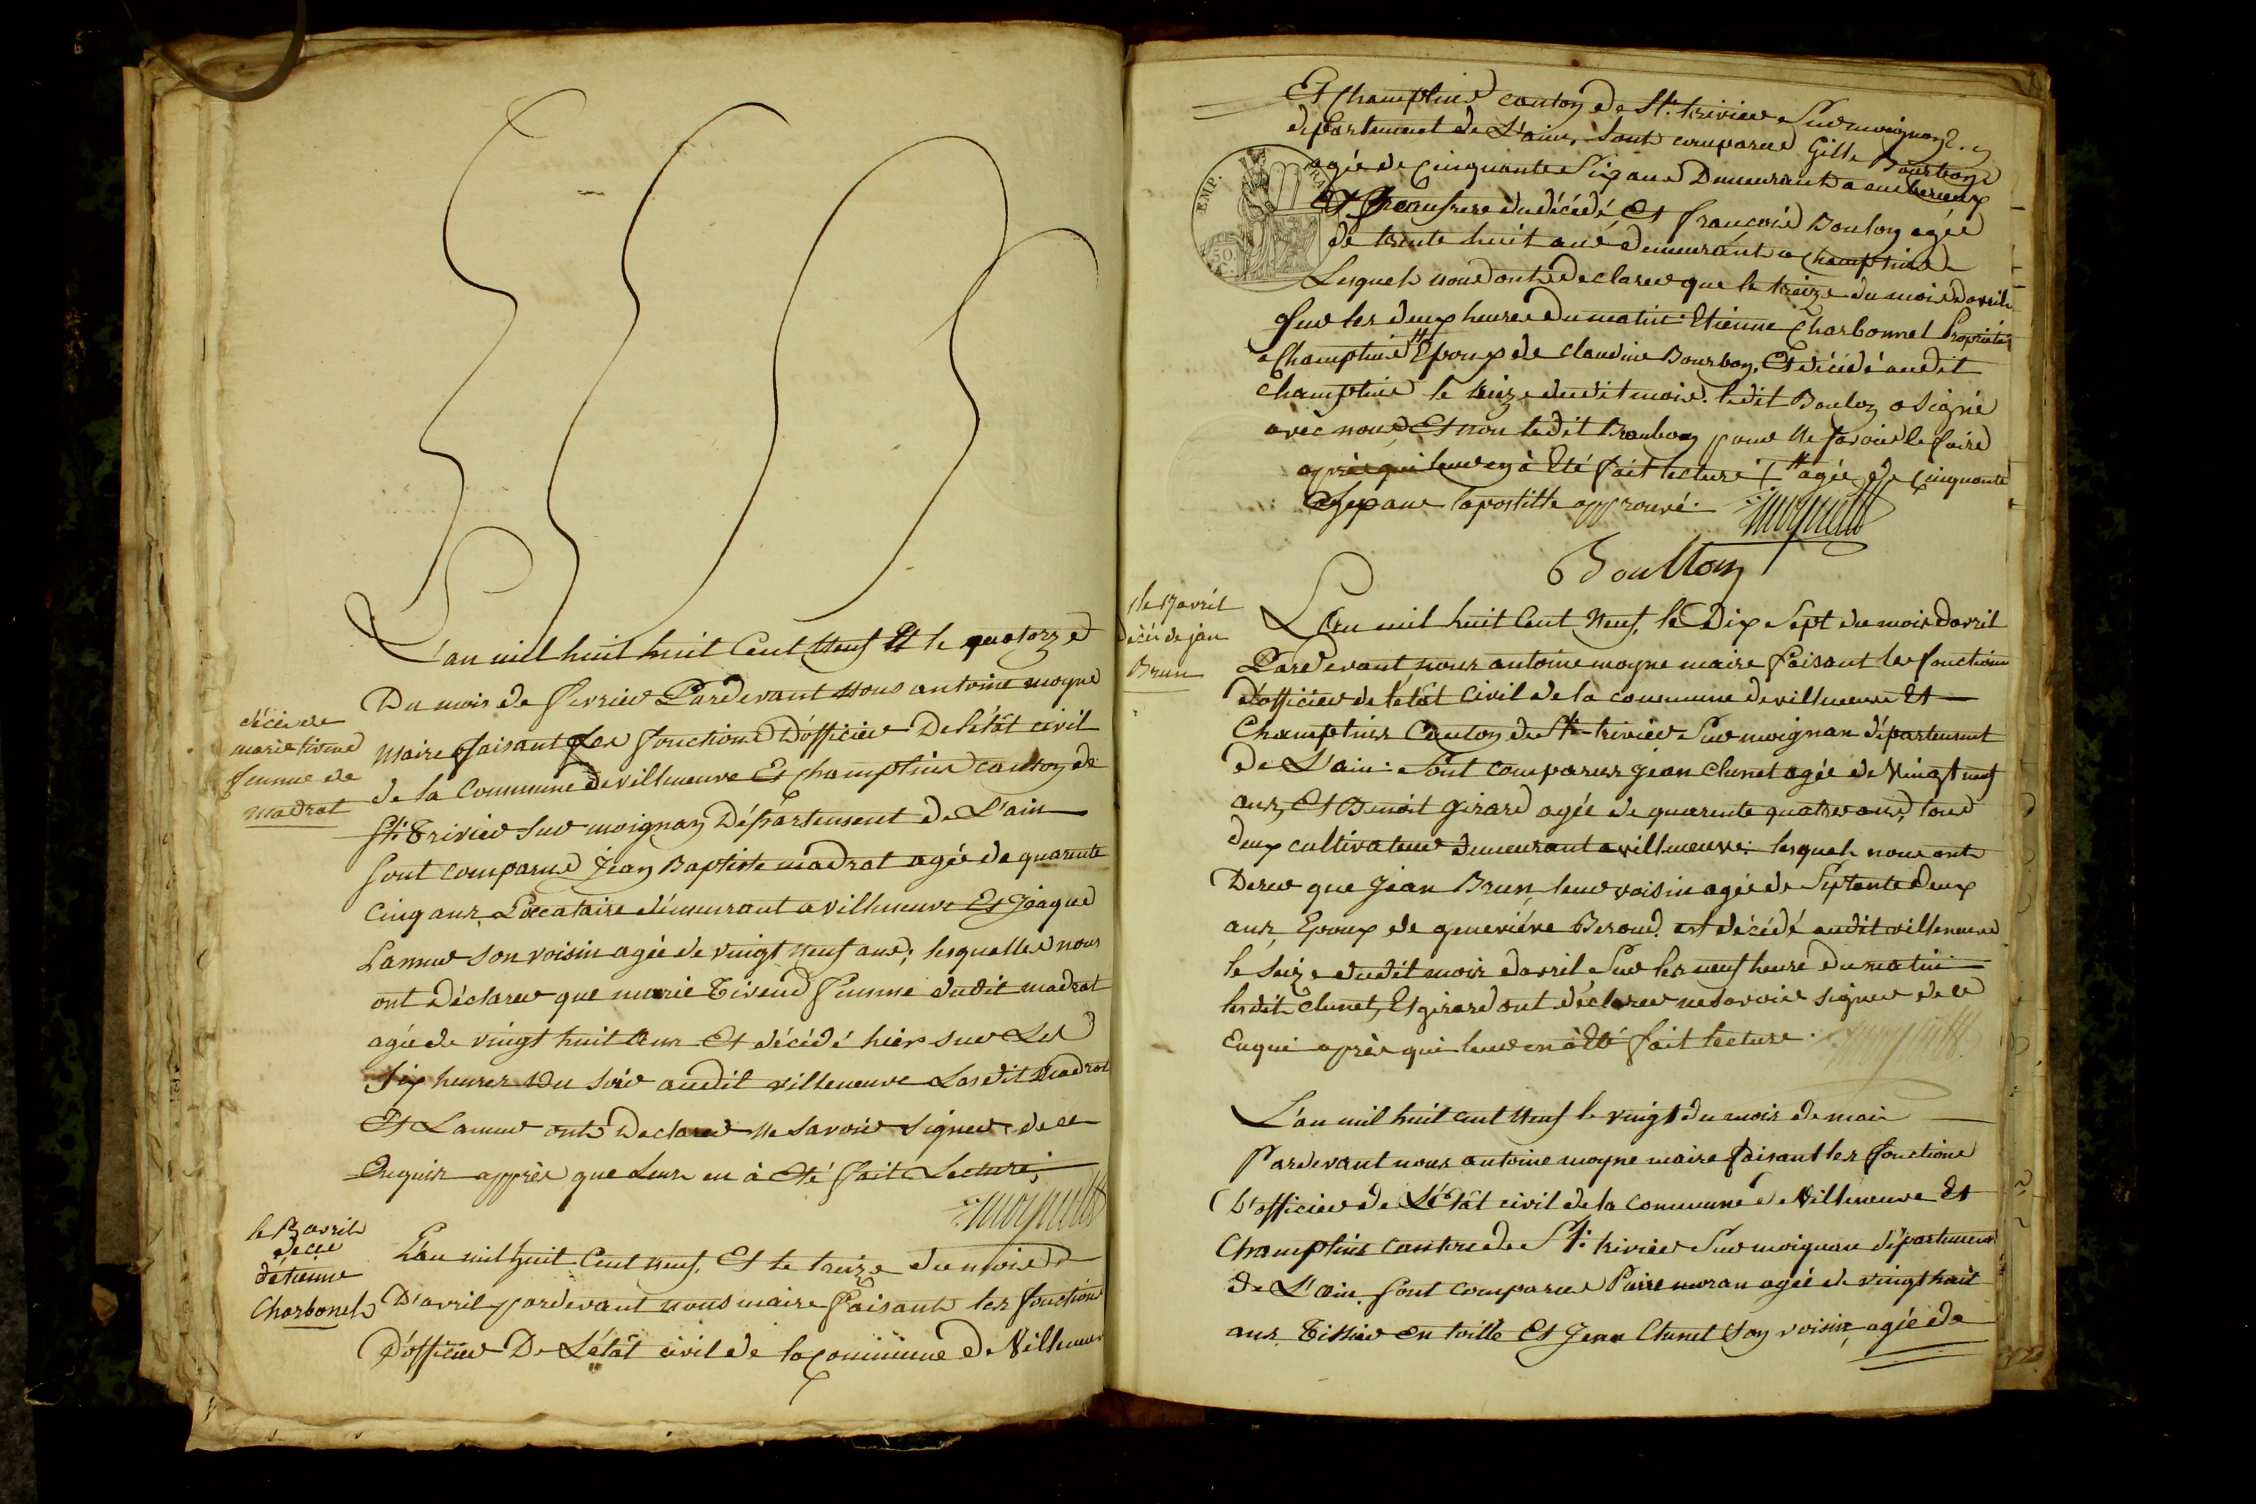 décès de
marie tivend
femme de
madrat
L'an mill huit huit Cent Neuf Et le quatorze
Du mois de fevrier Pardevant Nous antoine moyne
Maire faisant les fonctions D'officier De l'état civil
de la Commune de villeneuve Et Champtins canton de
St. Trivier sur moignan Département de L'ain
sont comparus Jean Baptiste madrat agée de quarente
Cinq ans, Loccataire démeurant a villeneuve Et Jâaque
Lamur son voisin agée de vingt Neuf ans; lesquelles nous
ont Déclarer que marie Tivend femme dudit madrat
agée de vingt huit ans Et décédé hièr sur Les
six heures Du soir audit villeneuve Lesdit Madrat
Et Lamur ont Declarer Ne savoir signer de ce
Enquis apprès que Leur en à Eté fait Lecture;
moyne
le 13 avril
décé
détienne
Charbonel
L'an mil huit Cent neuf, Et le treize du mois
D'avril pardevant nous maire faisant les fonctions
D'officier De L'état civil de la commune de Villeneuve
Et Champtins canton de St. trivier sur moignan
département de L'ain, sont comparus Gille Bourbon
agée de cinquante six ans Demeurant a
EMP. FRA
Et Beaufrere du décédé, Et francois Boulon agée
de trente huit ans demeurant a Champtins
50
Lesquels nous ont declarer que le treize du mois d'avril
sur les deux heures du matin Etienne Charbonnel Propriétaire
a Champtins # Epoux de claudine Bourbon, Et décédé audit
Champtins le treize dudit mois. ledit Boulon a signé
avec nous Et non ledit Bourbon pour Ne savoir le faire
après qui leur en à Eté fait lecture # agée de cinquante
ans lapostille approuvé.
moyne
Boullon
le 17 avril
décès de jean
Brun
L'an mil huit Cent Neuf, le Dix Sept du mois d'avril
Pardevant nous antoine moyne maire faisant les fonctions
d'officier de l'état Civil de la commune de villeneuve Et
Champtins Canton de St. trivier Sur moignan département
de L'ain: sont comparus jean clunet agée de vingt neuf
ans, Et Benoit girard agée de quarente quatre ans, tous
deux cultivateur demeurant a villeneuve: lesquels nous ont
Derer que jean Brun, leur voisin agée de Septante deux
ans, Epoux de geneviéve Beroud. est décédé audit villeneuve
le Seize dudit mois d'avril Sur les neuf heure du matin
lesdit clunet, Et girard ont déclarer ne savoir signer de ce
Enqui après qui leur en à Eté fait lecture.
L'an mil huit cent Neuf le vingt du mois de mai
Pardevant nous antoine moyne maire faisant les fonctions
D'officier de L'état civil de la commune de Villeneuve Et
Champtins canton de St. trivier Sur moignan département
de L'ain, sont comparus Pierre moran agée de vingt huit
ans Tissier en toille Et Jean Clunet Son voisin, agée de